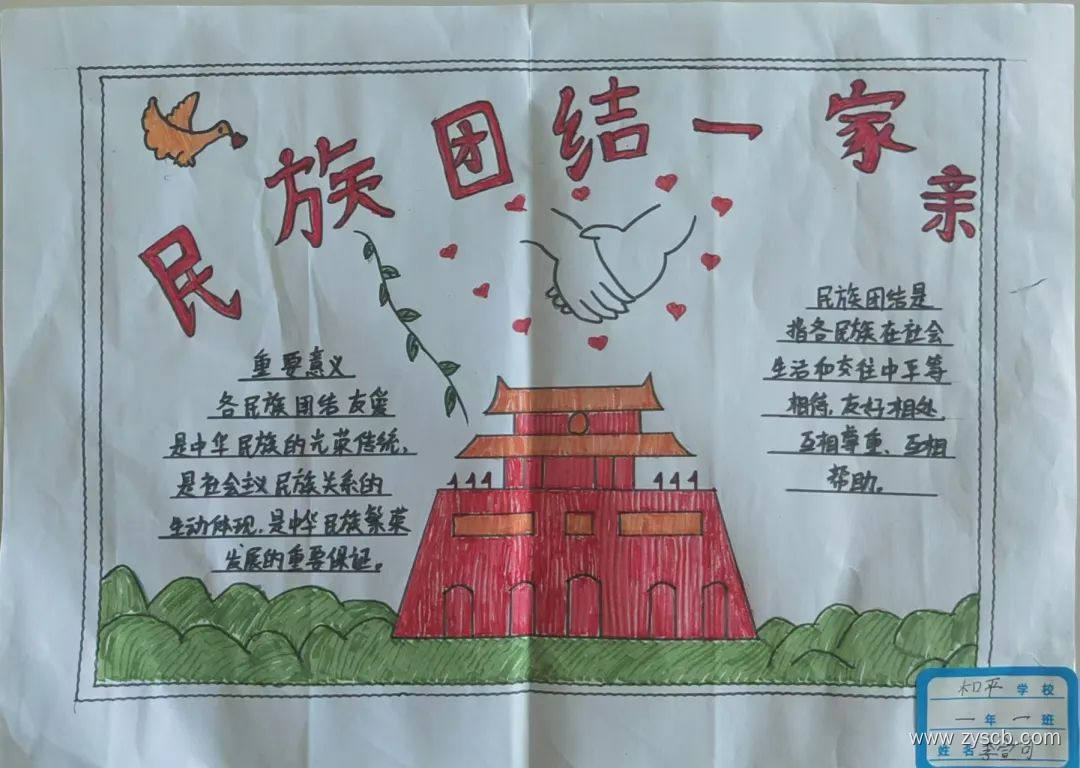 民族团结一家亲
重要意义
各民族团结友爱
是中华民族的光荣传统,
是社会主义民族关系的
生动体现,是中华民族繁荣
发展的重要保证。
民族团结是
指各民族在社会
生活和交往中平等
相待,友好相处,
互相尊重、互相
帮助。
和平学校
一年一班
姓名李
www.zyscb.com